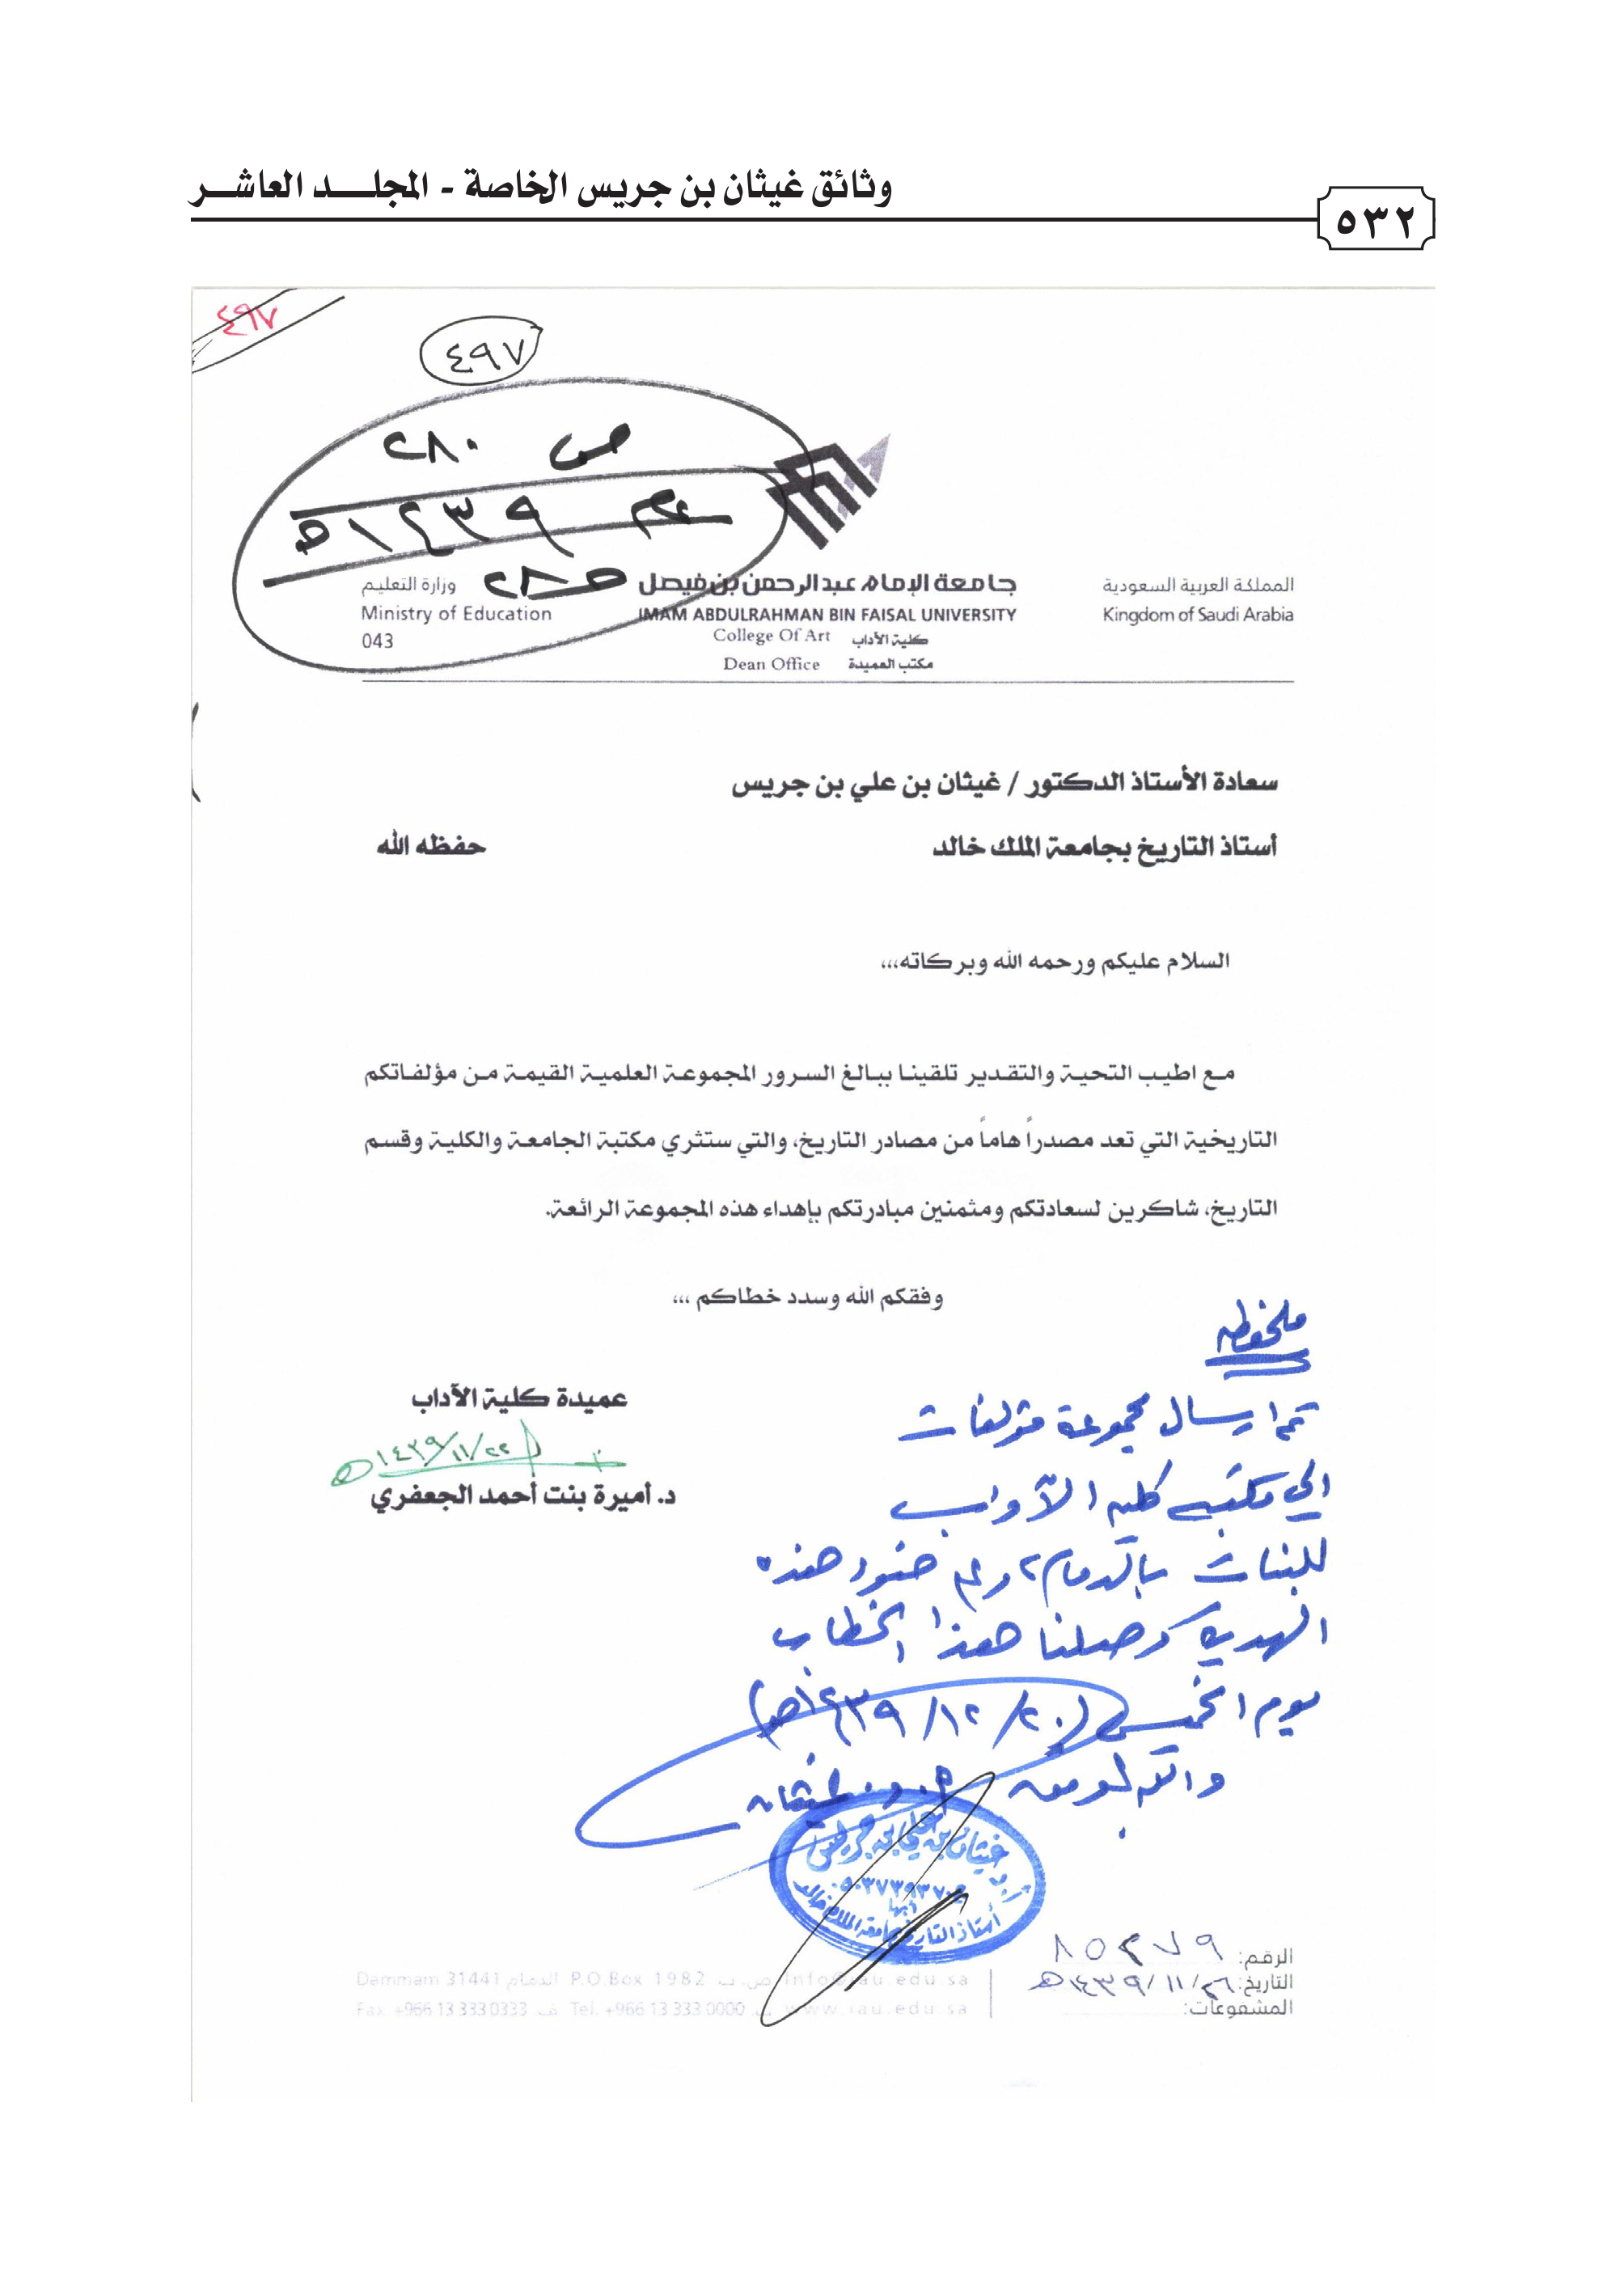 وثائق غيثان بن جريس الخاصة - المجلد العاشر
٥٣٢
٤٩٧
٤٩٧
ص ٢٨٠
١٤٣٩هـ
المملكة العربية السعودية
Kingdom of Saudi Arabia
جامعة الإمام عبدالرحمن بن فيصل
IMAM ABDULRAHMAN BIN FAISAL UNIVERSITY
College Of Art كلية الآداب
Dean Office مكتب العميدة
وزارة التعليم
Ministry of Education
043
سعادة الأستاذ الدكتور / غيثان بن علي بن جريس
أستاذ التاريخ بجامعة الملك خالد حفظه الله
السلام عليكم ورحمه الله وبركاته،،،
مع اطيب التحية والتقدير تلقينا ببالغ السرور المجموعة العلمية القيمة من مؤلفاتكم
التاريخية التي تعد مصدراً هاماً من مصادر التاريخ، والتي ستثري مكتبة الجامعة والكلية وقسم
التاريخ، شاكرين لسعادتكم ومثمنين مبادرتكم بإهداء هذه المجموعة الرائعة.
وفقكم الله وسدد خطاكم ،،،
عميدة كلية الآداب
١٤٣٩/١١/٢٢هـ
د. أميرة بنت أحمد الجعفري
ملحوظه
تم ارسال مجموعة مؤلفات
الى مكتبة كلية الآداب
للبنات بالدمام، هذه
الهدية وصلنا هذا الخطاب
يوم الخميس (٢٠/ ١٢/ ١٤٣٩هـ)
والله غيثان
غيثان بن علي بن جريس
أ.د
٠٥٠٣٧٣٩٣٧٠
أبها
أستاذ التاريخ بجامعة الملك خالد
الرقم: ٨٥٢٧٩
التاريخ: ١٤٣٩/١١/٢٦هـ
المشفوعات:
Dammam 31441 الدمام P.O.Box 1982 ص.ب info@iau.edu.sa
Fax. +966 13 333 0333 ف Tel. +966 13 333 0000 www.iau.edu.sa